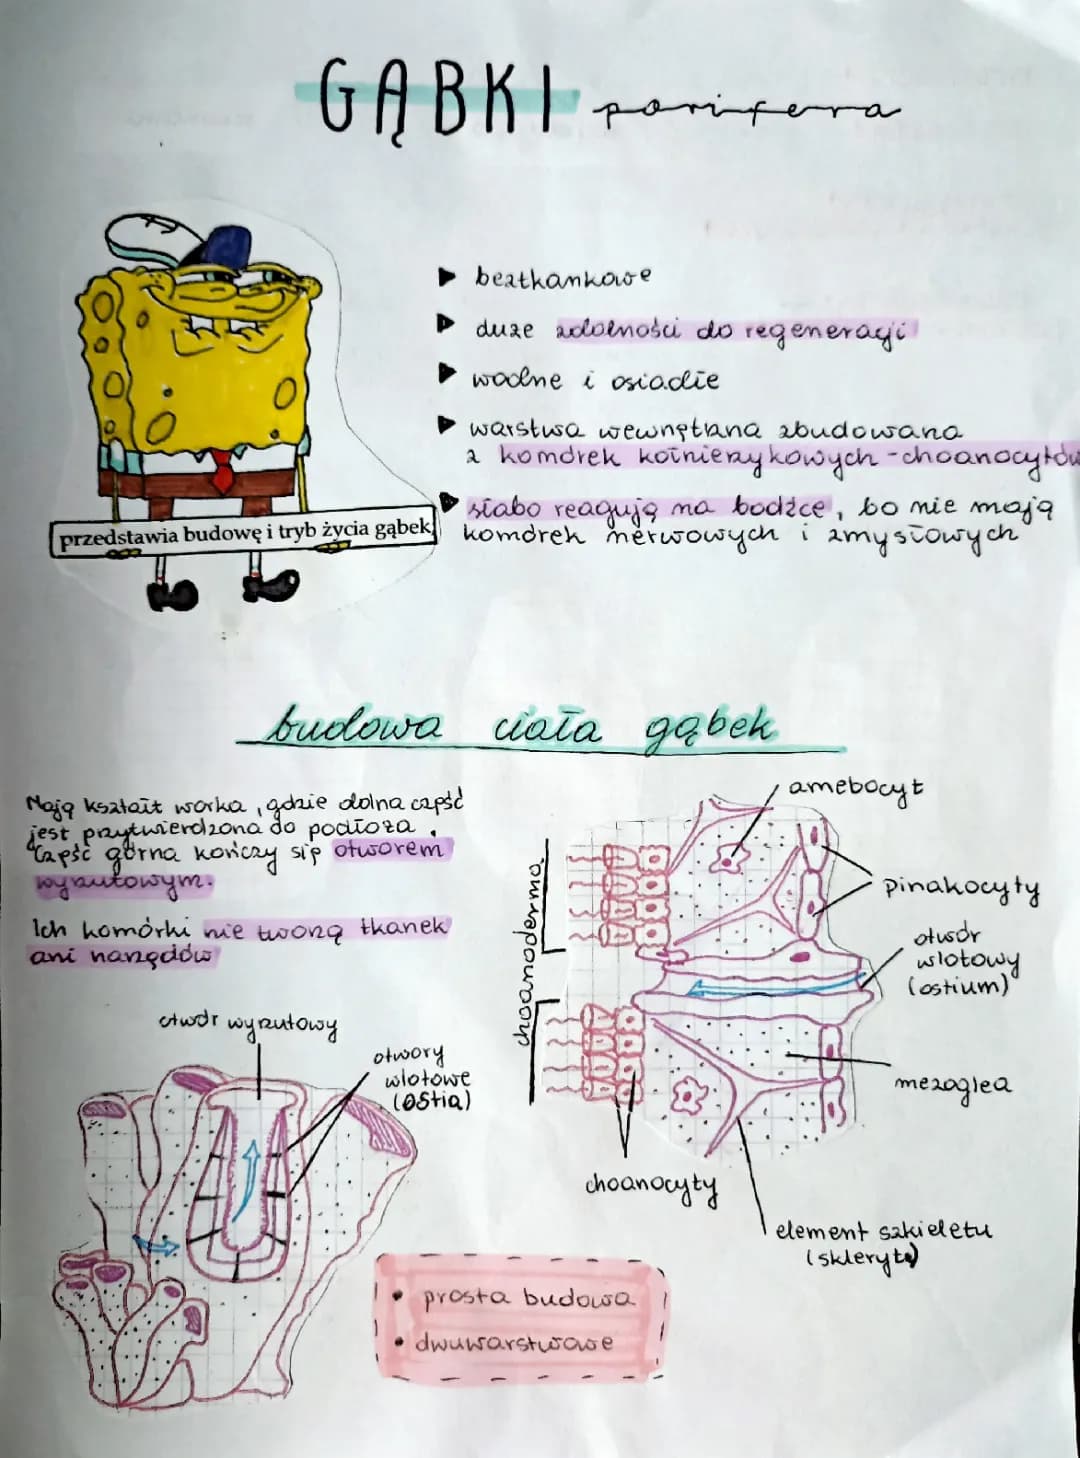 GĄBKI porifera
beztkankowe
duże zdolności do regeneracji
wodne i osiadłe
warstwa wewnętrzna zbudowana
z komórek kołnierzykowych - choanocytów
słabo reagują na bodźce, bo nie mają
komórek nerwowych i zmysłowych
przedstawia budowę i tryb życia gąbek
budowa ciała gąbek
Mają kształt worka, gdzie dolna część
jest przytwierdzona do podłoża.
Część górna kończy się otworem
wyrzutowym.
Ich komórki nie tworzą tkanek
ani narządów
otwór wyrzutowy
otwory
wlotowe
(ostia)
amebocyt
pinakocyty
otwór
wlotowy
(ostium)
mezoglea
choanoderma
choanocyty
element szkieletu
(skleryt)
• prosta budowa
• dwuwarstwowe